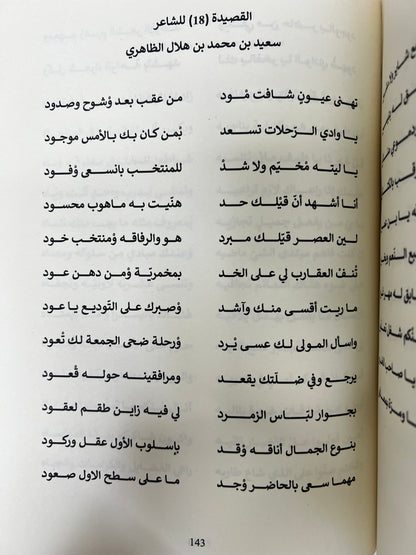 القصيدة (18) للشاعر
سعيد بن محمد بن هلال الظاهري
تهنى عيونٍ شافت مُود من عقب بعد وُشوح وصدود
يا وادي الرحلات تسعد بُمن كان بك بالأمس موجود
يا ليته مُخيّم ولا شدّ للمنتخب بانسعى وُفود
أنا أشهد أنّ قيّلك حد هنّيت به ماهوب محسود
لين العصر قيّلك مبرد هو والرفاقه وُمنتخب خود
تُنفُ العقارب لي على الخد بمخمريّة وُمن دهن عود
ما ريت أقسى منك وآشد وُصبرك على التوديع يا عود
واسأل المولى لك عسى يُرد وُرحلة ضحى الجمعة لك تُعود
يرجع وفي ضلّتك يقعد ومرافقينه حوله قُعود
بجوار لبّاس الزمرد لي فيه زاين طقم لعقود
بنوع الجمال أناقه وُقد بإسلوب الأول عقل وركود
مهما سعى بالحاضر وُجد ما على سطح الاول صعود
143